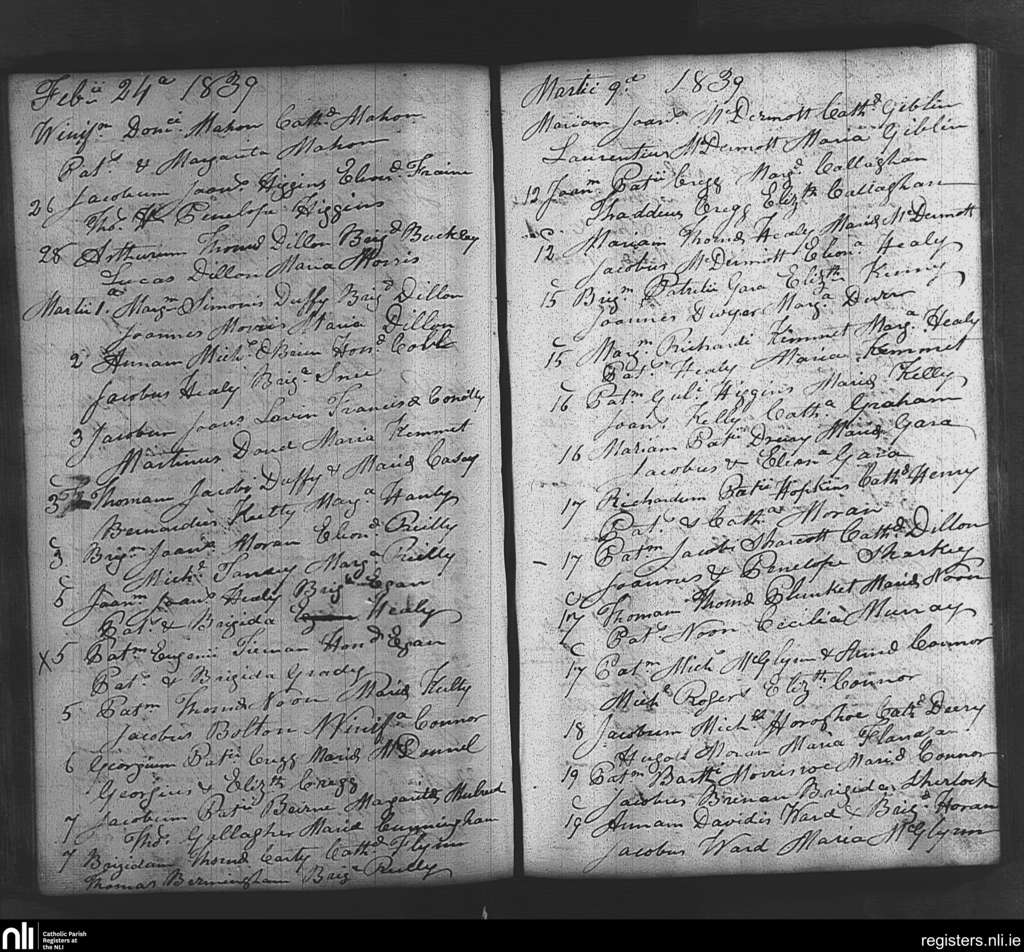 Febii 24a 1839
Winifm Donci. Mahon Cathd Mahon
Patr. & Margarita Mahon
26 Jacobum Joans Higgins Eleond Fraine
Ths. Penelope Higgins
28 Arthurum Thomd Dillon Brigd Buckley
Lucas Dillon Maria Morris
Martii 1.a Margm Simonis Duffy Brigd Dillon
Joannes Morris Maria Dillon
2 Annam Michs OBrien Hond Coble
Jacobus Healy Briga
3 Jacobum Joans Lavin Francisd Conilly
Martinus Doud Maria Kemmet
3 Thomam Jacobi Duffy & Maria Casey
Bernardus Kielty Marga Hanly
3 Brigm Joans Moran Eleond Reilly
Michl Tansey Marga Reilly
5 Joanm Joans Healy Brigd Egan
Patr. & Brigida Healy
X 5 Patm Eugenii Tiernan Hond Egan
Patr. & Brigida Grady
5 Patm Thomd Noon Maria Kielty
Jacobus Bolton Winifa Connor
6 Georgium Patii Cregg Maria McDonnel
Georgius & Elizth Cregg
7 Jacobum Patii Beirne Margarita
Ths. Gallagher Maria Cunningham
7 Brigidam Thomd Carty Cathd Flynn
Thomas Bermingham Briga Reilly
Martii 9.a 1839
Mariam Joans McDermott Cathd Giblin
Laurentius McDermott Maria Giblin
12 Joanm Patii Cregg Margd Callaghan
Thaddeus Cregg Elizth Callaghan
12 Mariam Thomd Healy Maria McDermott
Jacobus McDermott Eleona Healy
15 Brigm Patritii Gara Elizth Kenny
Joannes Dwyer Marga Dwer
15 Margm Richardi Kimmet Marga Healy
Patr. Healy Maria Kemmet
16 Patm Guli. Higgins Maria Kelly
Joans Kelly Catha Graham
16 Mariam Patii Drury Maria Gara
Jacobus & Eleona Gara
17 Richardum Patii Hopkins Cathd Henry
Patr. & Catha Moran
17 Patm Jacobi Sharcott Cathd Dillon
Joannes & Penelope Sharkey
17 Thomam Thomd Plunket Maria Noon
Patr. Noon Cecilia Murray
17 Patm Michs McGlynn & Annd Connor
Michl Rogers Elizth Connor
18 Jacobum Michls Horoghoe Cathd Deery
Hugo Moran Maria Flanagan
19 Patm Bartii Morrisroe Maria Connor
Jacobus Brenan Brigida Sherlock
19 Annam Davidis Ward & Brigd Horan
Jacobus Ward Maria McGlynn
nli Catholic Parish
Registers at
the NLI
registers.nli.ie